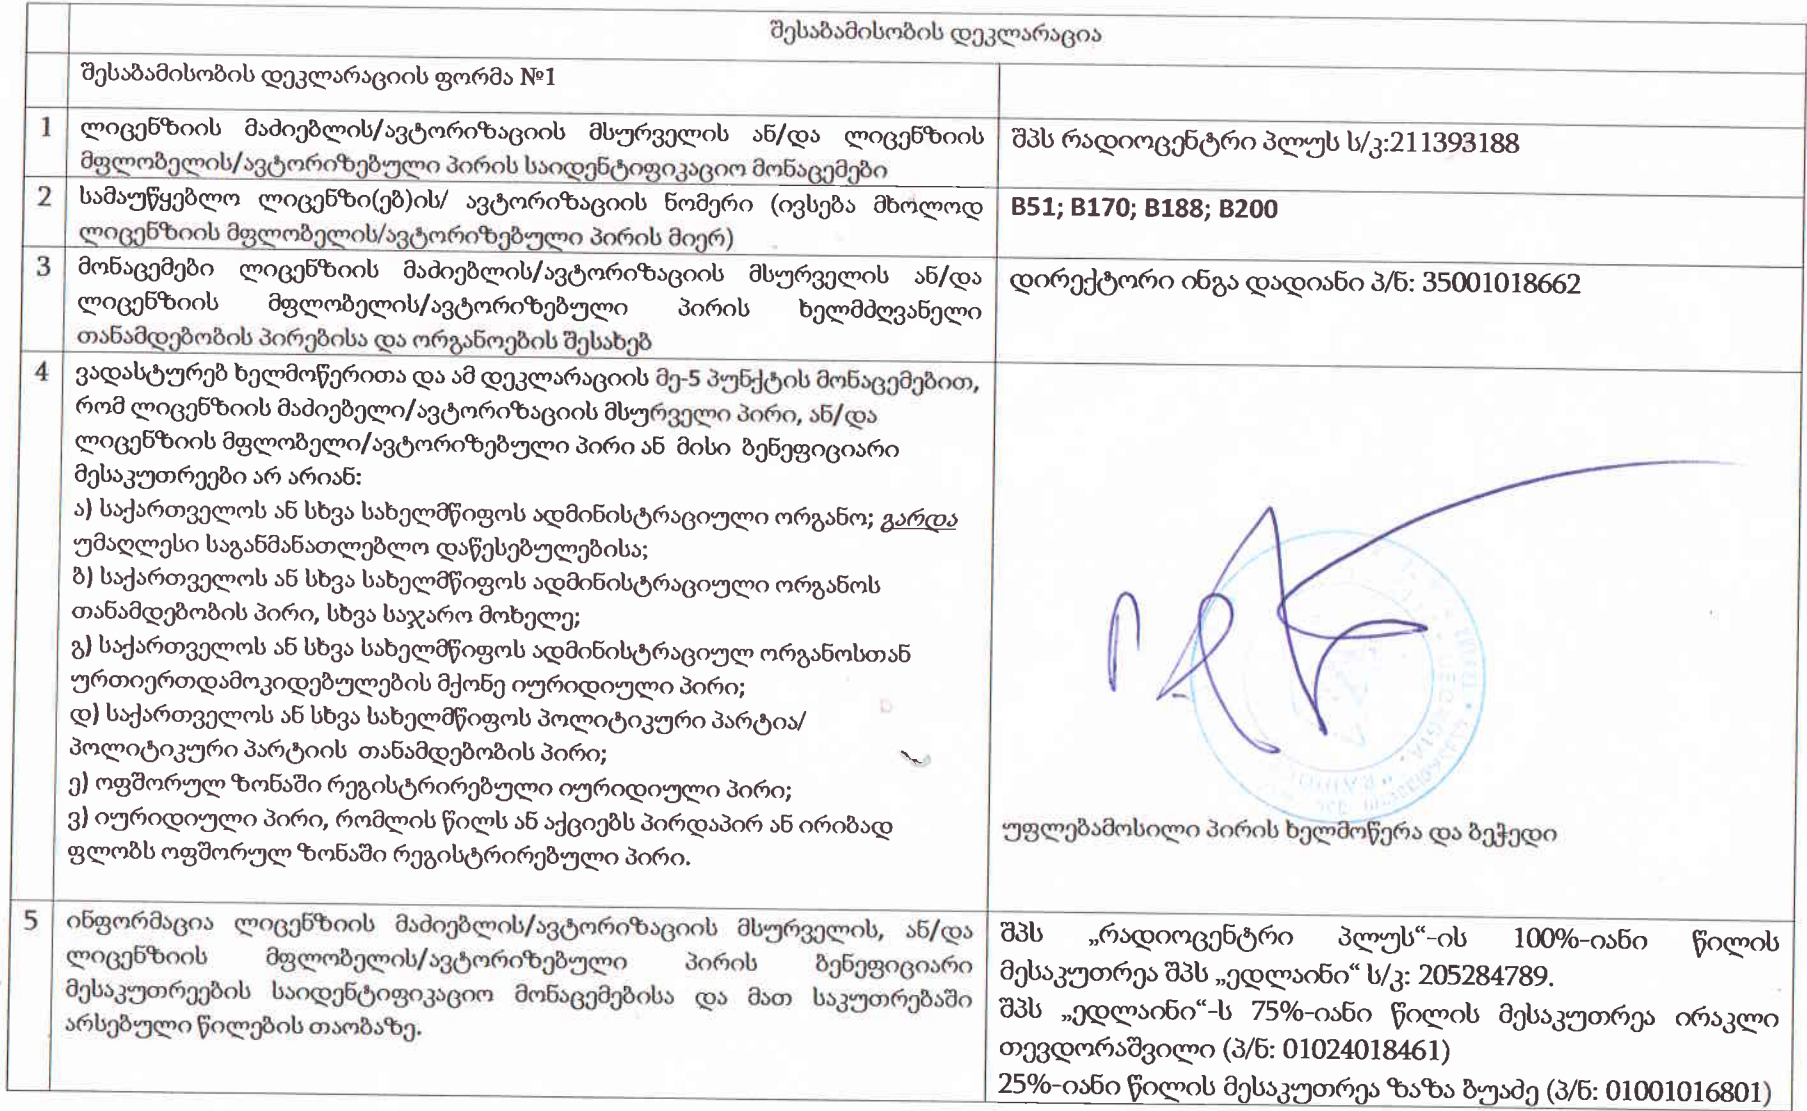 შესაბამისობის დეკლარაცია
შესაბამისობის დეკლარაციის ფორმა №1
1
ლიცენზიის მაძიებლის/ავტორიზაციის მსურველის ან/და ლიცენზიის
მფლობელის/ავტორიზებული პირის საიდენტიფიკაციო მონაცემები
შპს რადიოცენტრი პლუს ს/კ:211393188
2
სამაუწყებლო ლიცენზი(ებ)ის/ ავტორიზაციის ნომერი (ივსება მხოლოდ
ლიცენზიის მფლობელის/ავტორიზებული პირის მიერ)
B51; B170; B188; B200
3
მონაცემები ლიცენზიის მაძიებლის/ავტორიზაციის მსურველის ან/და
ლიცენზიის მფლობელის/ავტორიზებული პირის ხელმძღვანელი
თანამდებობის პირებისა და ორგანოების შესახებ
დირექტორი ინგა დადიანი პ/ნ: 35001018662
4
ვადასტურებ ხელმოწერითა და ამ დეკლარაციის მე-5 პუნქტის მონაცემებით,
რომ ლიცენზიის მაძიებელი/ავტორიზაციის მსურველი პირი, ან/და
ლიცენზიის მფლობელი/ავტორიზებული პირი ან მისი ბენეფიციარი
მესაკუთრეები არ არიან:
ა) საქართველოს ან სხვა სახელმწიფოს ადმინისტრაციული ორგანო; გარდა
უმაღლესი საგანმანათლებლო დაწესებულებისა;
ბ) საქართველოს ან სხვა სახელმწიფოს ადმინისტრაციული ორგანოს
თანამდებობის პირი, სხვა საჯარო მოხელე;
გ) საქართველოს ან სხვა სახელმწიფოს ადმინისტრაციულ ორგანოსთან
ურთიერთდამოკიდებულების მქონე იურიდიული პირი;
დ) საქართველოს ან სხვა სახელმწიფოს პოლიტიკური პარტია/
პოლიტიკური პარტიის თანამდებობის პირი;
ე) ოფშორულ ზონაში რეგისტრირებული იურიდიული პირი;
ვ) იურიდიული პირი, რომლის წილს ან აქციებს პირდაპირ ან ირიბად
ფლობს ოფშორულ ზონაში რეგისტრირებული პირი.
უფლებამოსილი პირის ხელმოწერა და ბეჭედი
5
ინფორმაცია ლიცენზიის მაძიებლის/ავტორიზაციის მსურველის, ან/და
ლიცენზიის მფლობელის/ავტორიზებული პირის ბენეფიციარი
მესაკუთრეების საიდენტიფიკაციო მონაცემებისა და მათ საკუთრებაში
არსებული წილების თაობაზე.
შპს „რადიოცენტრი პლუს“-ის 100%-იანი წილის
მესაკუთრეა შპს „ედლაინი“ ს/კ: 205284789.
შპს „ედლაინი“-ს 75%-იანი წილის მესაკუთრეა ირაკლი
თევდორაშვილი (პ/ნ: 01024018461)
25%-იანი წილის მესაკუთრეა ზაზა ბუაძე (პ/ნ: 01001016801)